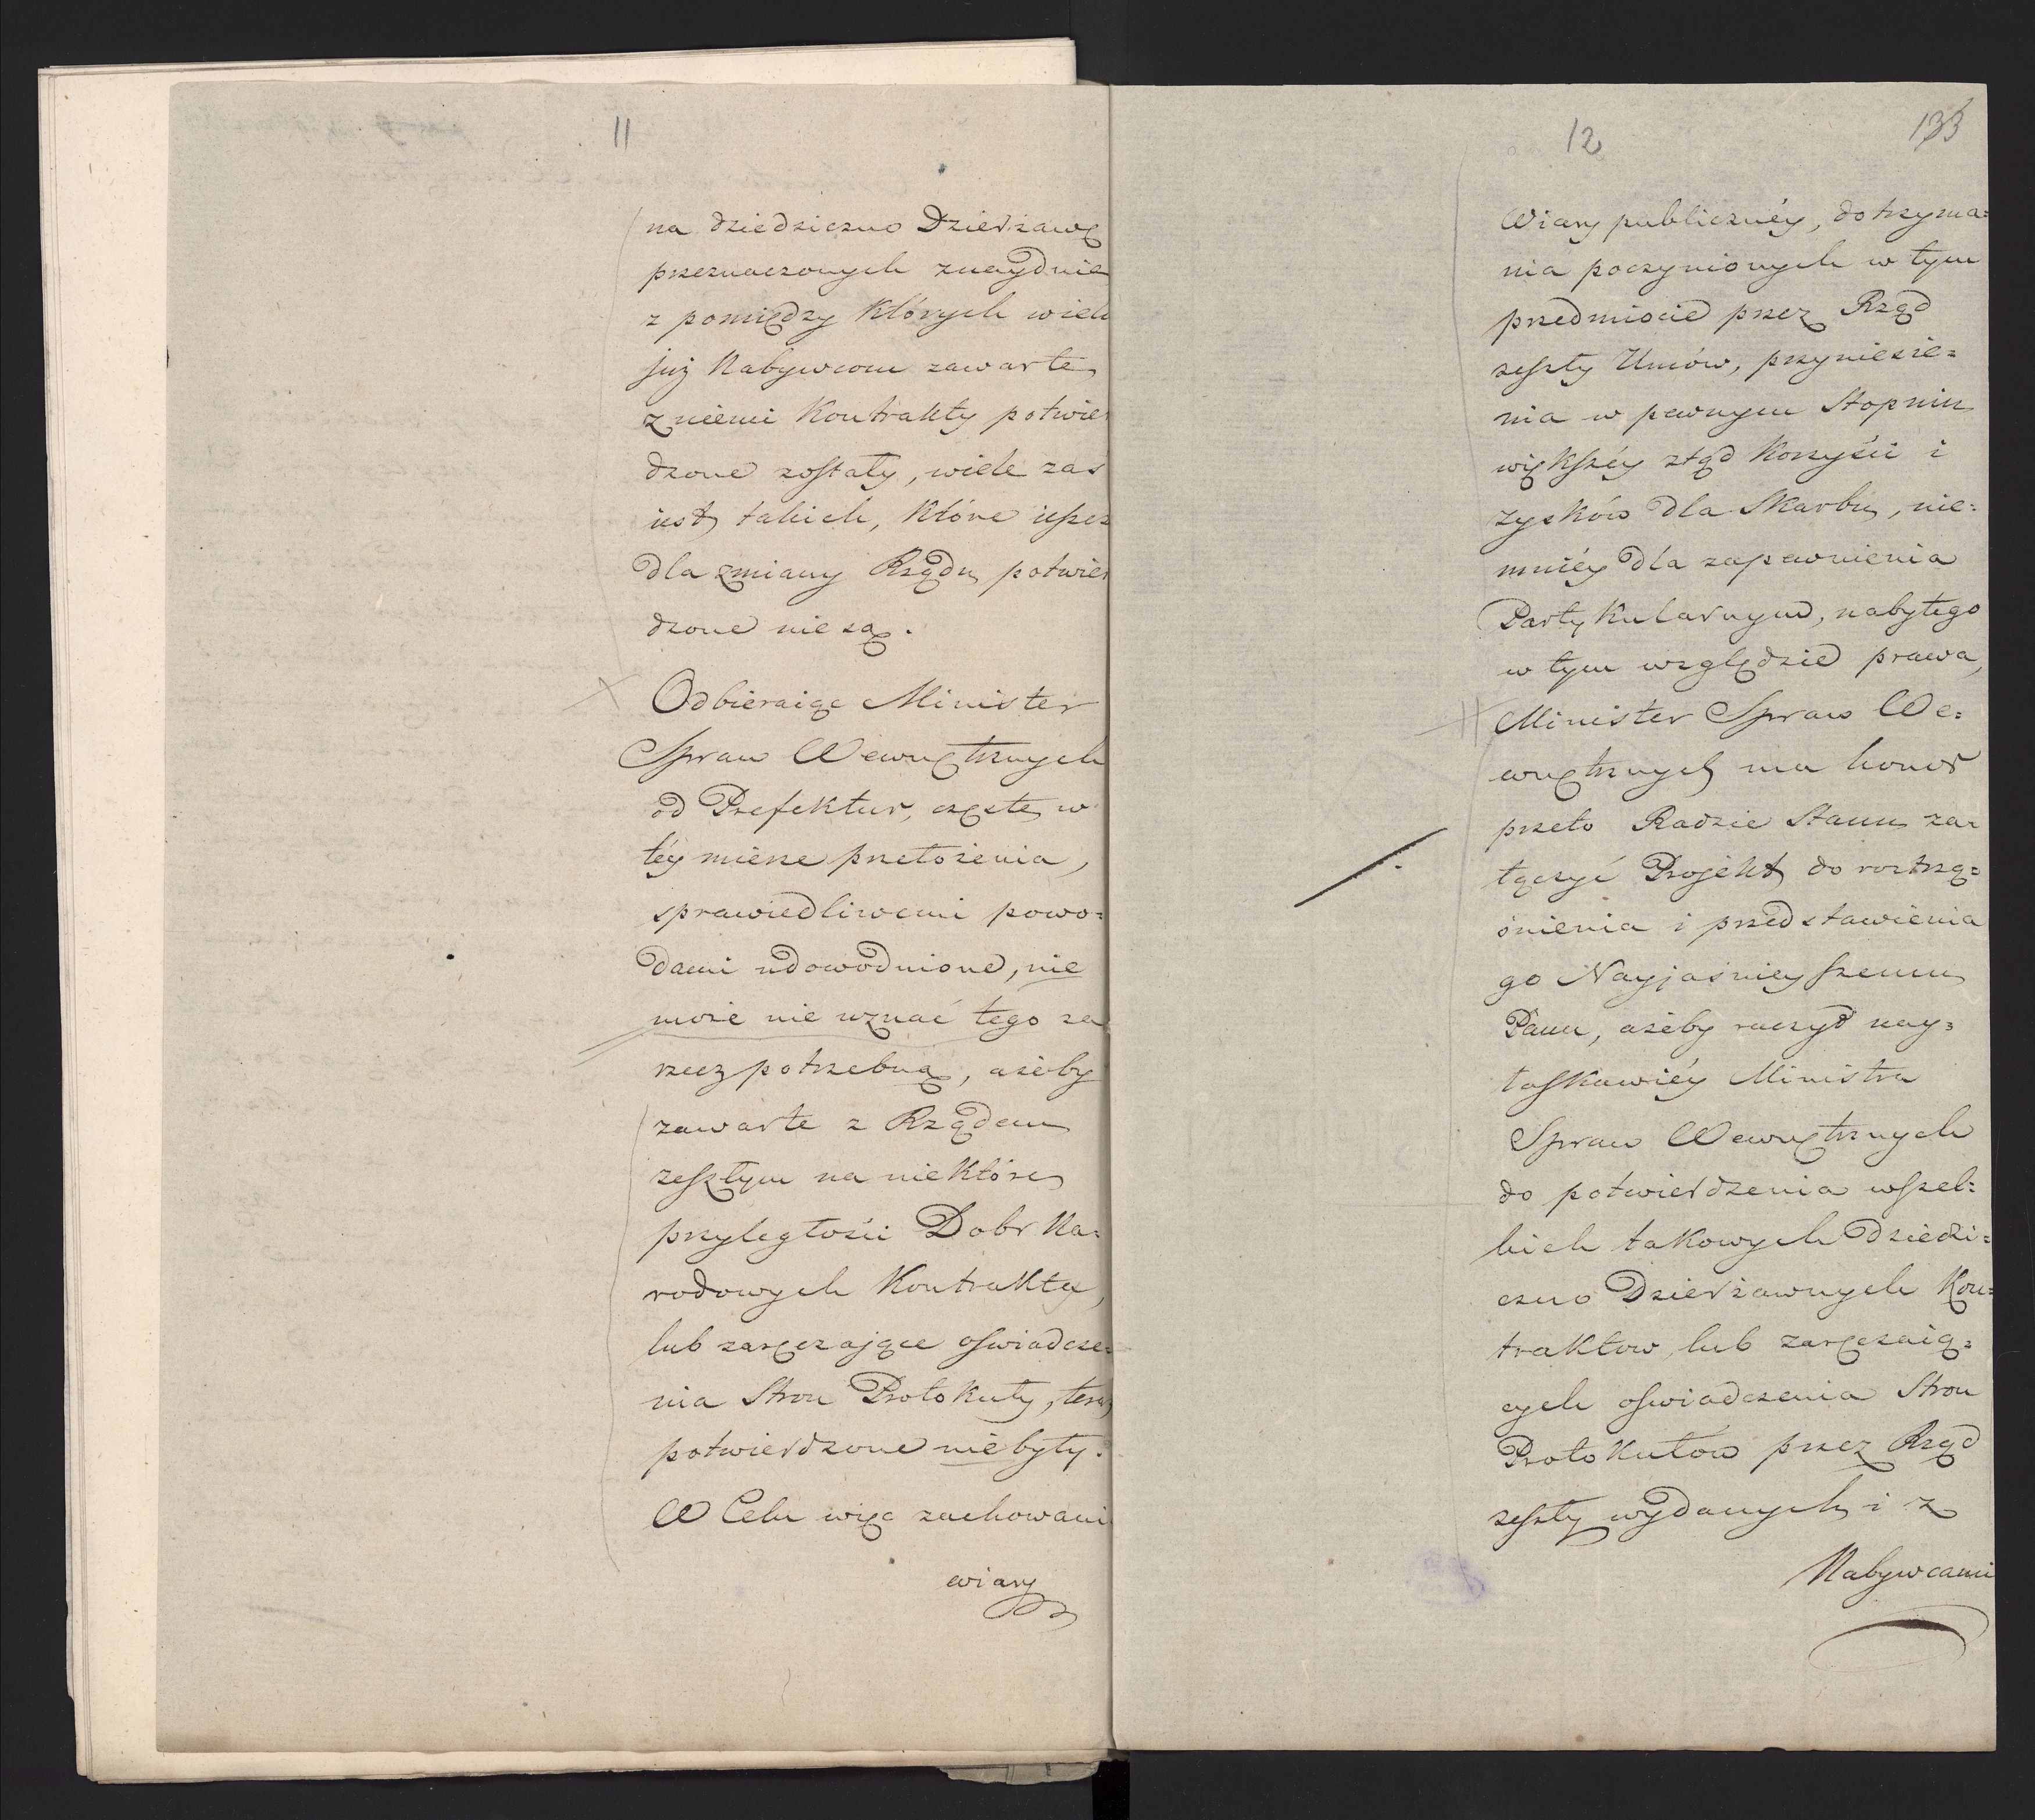 11
na dziedziczno Dzierżawę
przeznaczonych znayduie
z pomiędzy których wiele
już Nabywcom zawarte
z niemi Kontrakty potwier
dzone zostały, wiele zas
iest takich, które ieszcz
dla zmiany Rządu potwier
dzone nie są.
Odbieraiąc Minister
Spraw Wewnętrznych
od Prefektur, częste w
téy mierze przełożenia,
sprawiedliwemi powo=
dami udowodnione, nie
może nie uznać tego za
rzecz potrzebną, ażeby
zawarte z Rządem
zeszłym na niektóre
przyległości Dobr Na=
rodowych Kontrakty,
lub zaręczające oświadcze=
nia Stron Protokuły, teraz
potwierdzone nie były.
W Celu więc zachowani
wiary
12
133
Wiary publicznéy, dotrzyma=
nia poczynionych w tym
przedmiocie przez Rząd
zeszły Umów, przyniesie=
nia w pewnym Stopniu
większéy ztąd Korzyści i
zysków dla Skarbu, nie=
mniéy dla zapewnienia
Partykularnym, nabytego
w tym względzie prawa,
Minister Spraw We=
wnętrznych ma honor
przeto Radzie Stanu za=
łączyć Projekt do roztrzą=
śnienia i przedstawienia
go Nayjaśnieyszemu
Panu, ażeby raczył nay=
łaskawiéy Ministra
Spraw Wewnętrznych
do potwierdzenia wszel=
kich takowych Dziedzi=
czno Dzierżawnych Kon=
traktow lub zaręczaią=
cych oświadczenia Stron
Protokułów przez Rząd
zeszły wydanych i z
Nabywcami